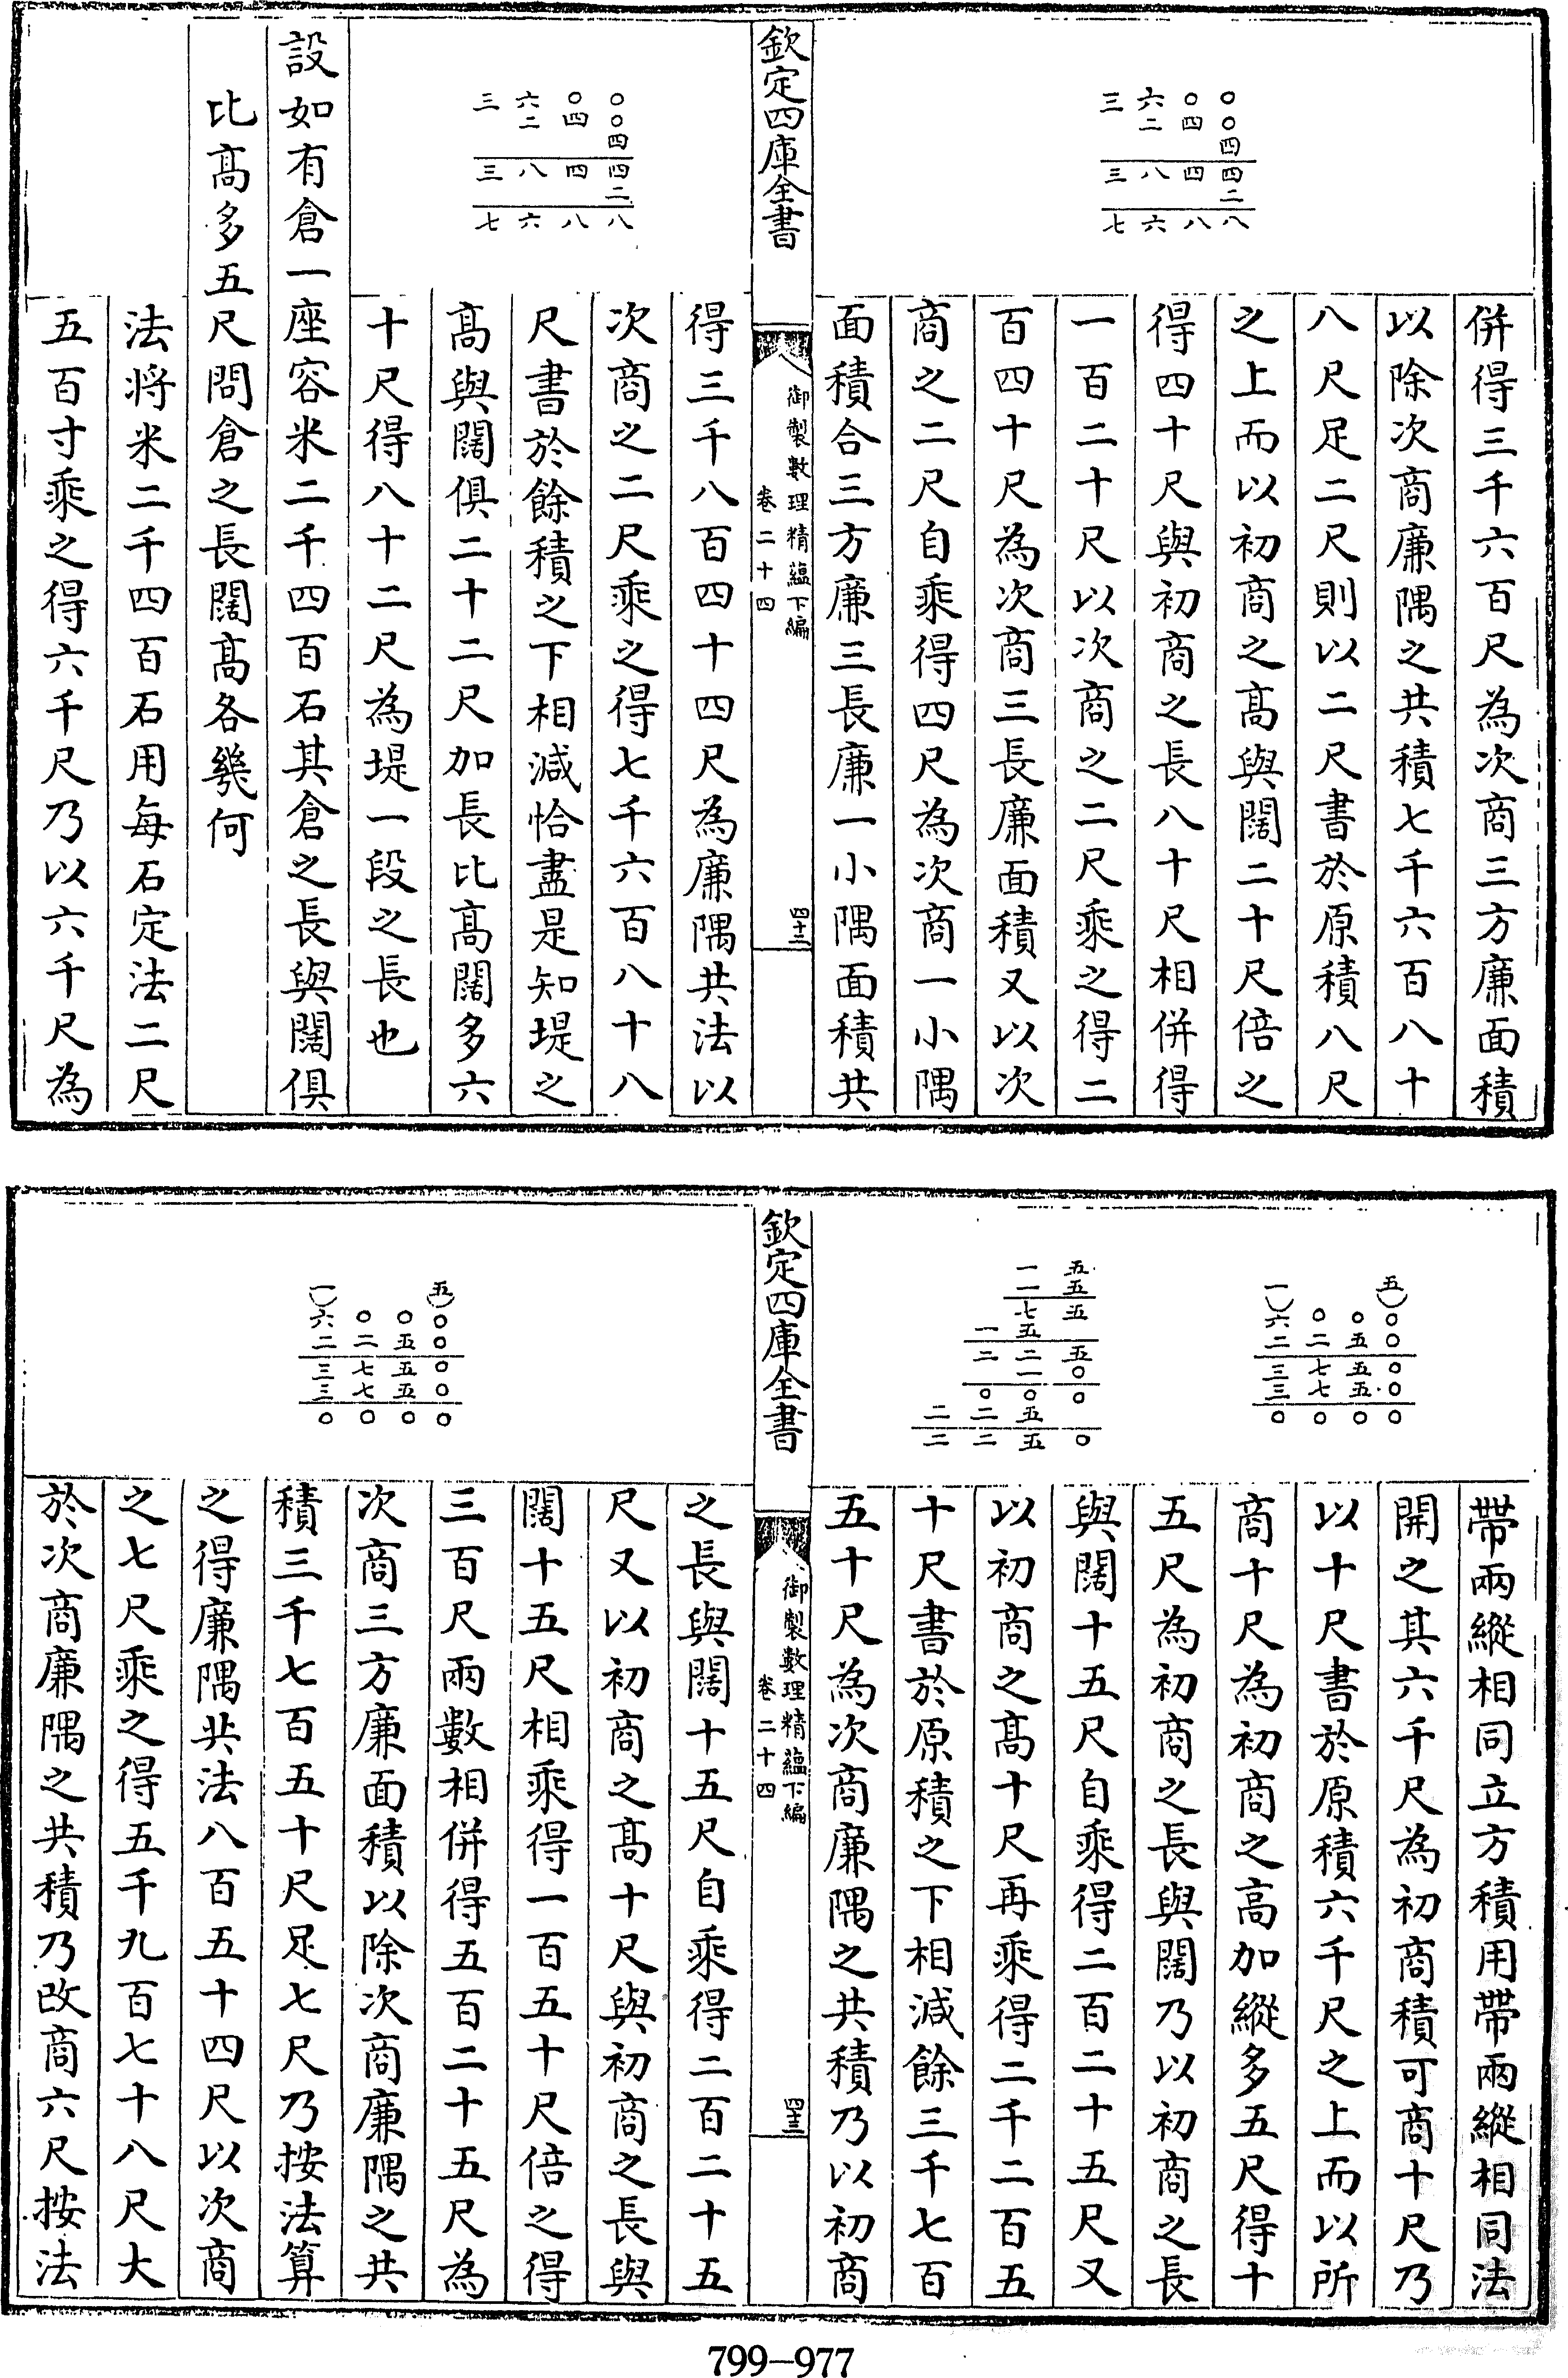 併得三千六百尺為次商三方廉面積
以除次商廉隅之共積七千六百八十
八尺足二尺則以二尺書於原積八尺
之上而以初商之髙與闊二十尺倍之
得四十尺與初商之長八十尺相併得
一百二十尺以次商之二尺乘之得二
百四十尺為次商三長廉面積又以次
商之二尺自乘得四尺為次商一小隅
面積合三方廉三長廉一小隅面積共
三六〇〇
二四〇
四
三八四四
二
七六八八
欽定四庫全書
御製數理精蘊下編
卷二十四
四十二
得三千八百四十四尺為廉隅共法以
次商之二尺乘之得七千六百八十八
尺書於餘積之下相減恰盡是知堤之
髙與闊俱二十二尺加長比髙闊多六
十尺得八十二尺為堤一段之長也
三六〇〇
二四〇
四
三八四四
二
七六八八
設如有倉一座容米二千四百石其倉之長與闊俱
比髙多五尺問倉之長闊髙各幾何
法將米二千四百石用每石定法二尺
五百寸乘之得六千尺乃以六千尺為
帶兩縱相同立方積用帶兩縱相同法
開之其六千尺為初商積可商十尺乃
以十尺書於原積六千尺之上而以所
商十尺為初商之高加縱多五尺得十
五尺為初商之長與闊乃以初商之長
與闊十五尺自乘得二百二十五尺又
以初商之髙十尺再乘得二千二百五
十尺書於原積之下相減餘三千七百
五十尺為次商廉隅之共積乃以初商
一五
六〇〇〇
二二五〇
三七五〇
三七五〇
〇〇〇〇
一五
一五
七五
一五
二二五
一〇
〇〇〇
二二五
二二五〇
欽定四庫全書
御製數理精蘊下編
卷二十四
四十三
之長與闊十五尺自乘得二百二十五
尺又以初商之髙十尺與初商之長與
闊十五尺相乘得一百五十尺倍之得
三百尺兩數相併得五百二十五尺為
次商三方廉面積以除次商廉隅之共
積三千七百五十尺足七尺乃按法算
之得廉隅共法八百五十四尺以次商
之七尺乘之得五千九百七十八尺大
於次商廉隅之共積乃改商六尺按法
一五
六〇〇〇
二二五〇
三七五〇
三七五〇
〇〇〇〇
799-977